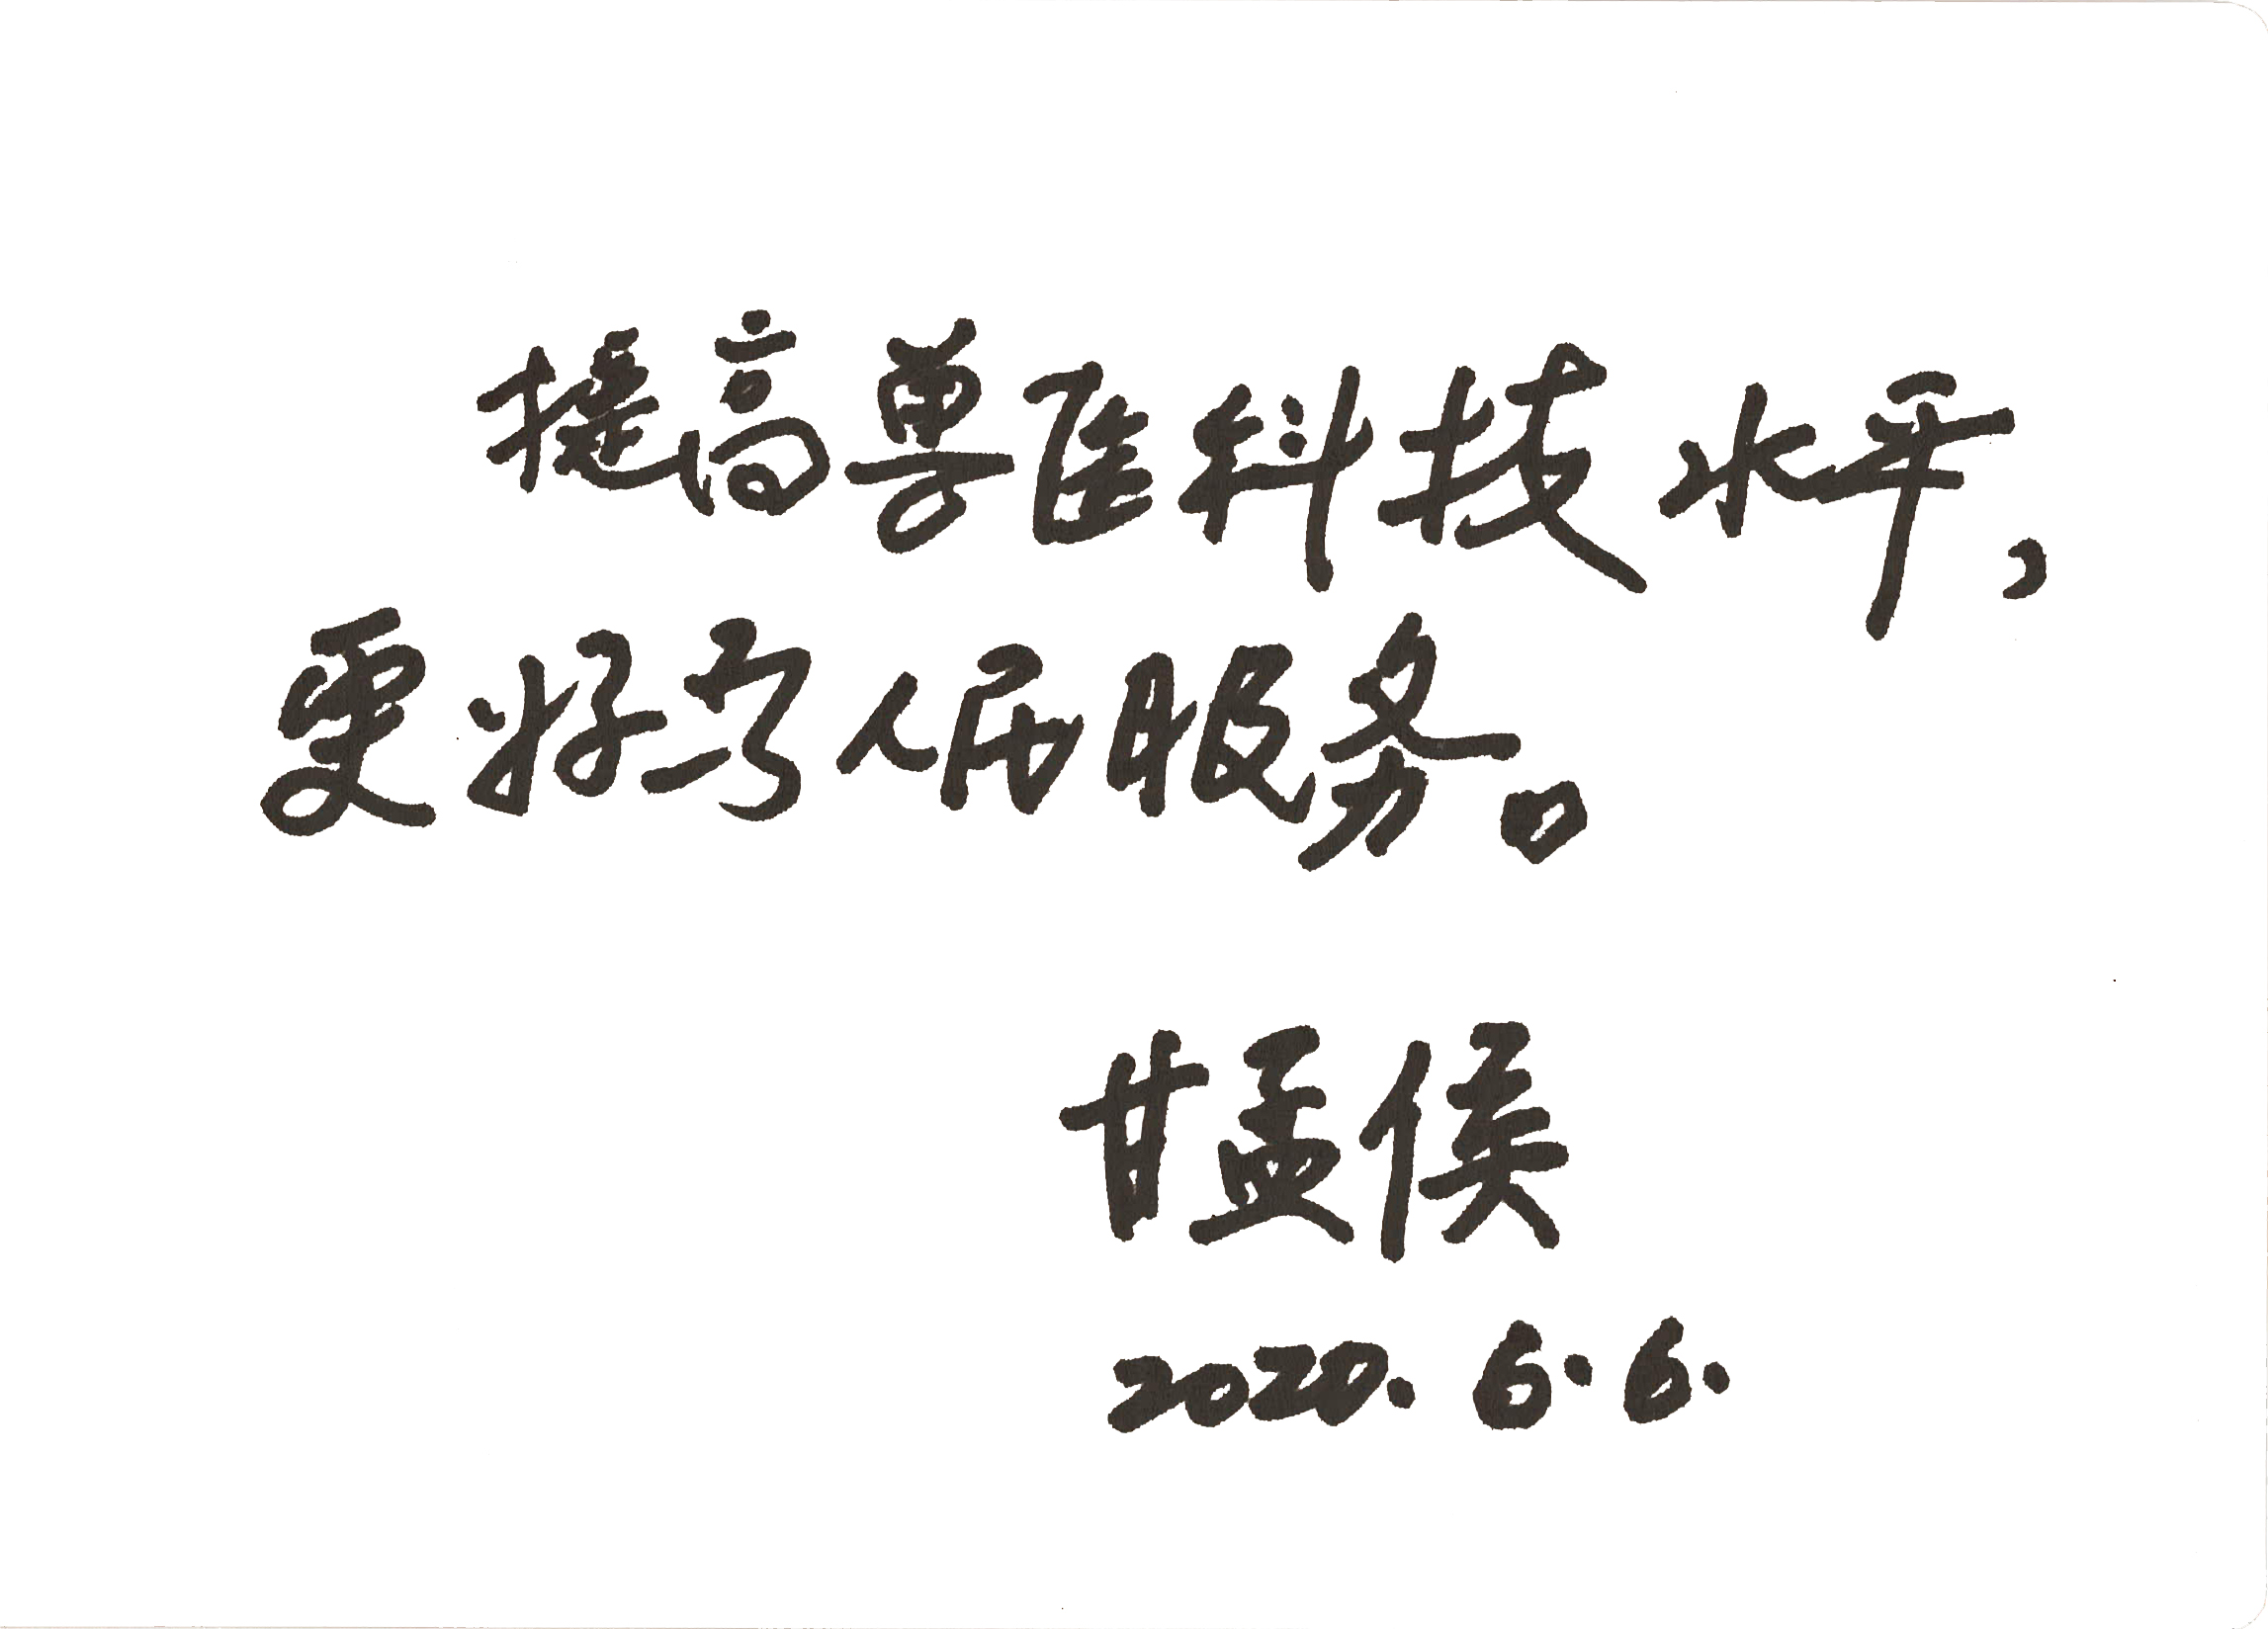 提高兽医科技水平，
更好为人民服务。
甘孟侯
2020.6.6.